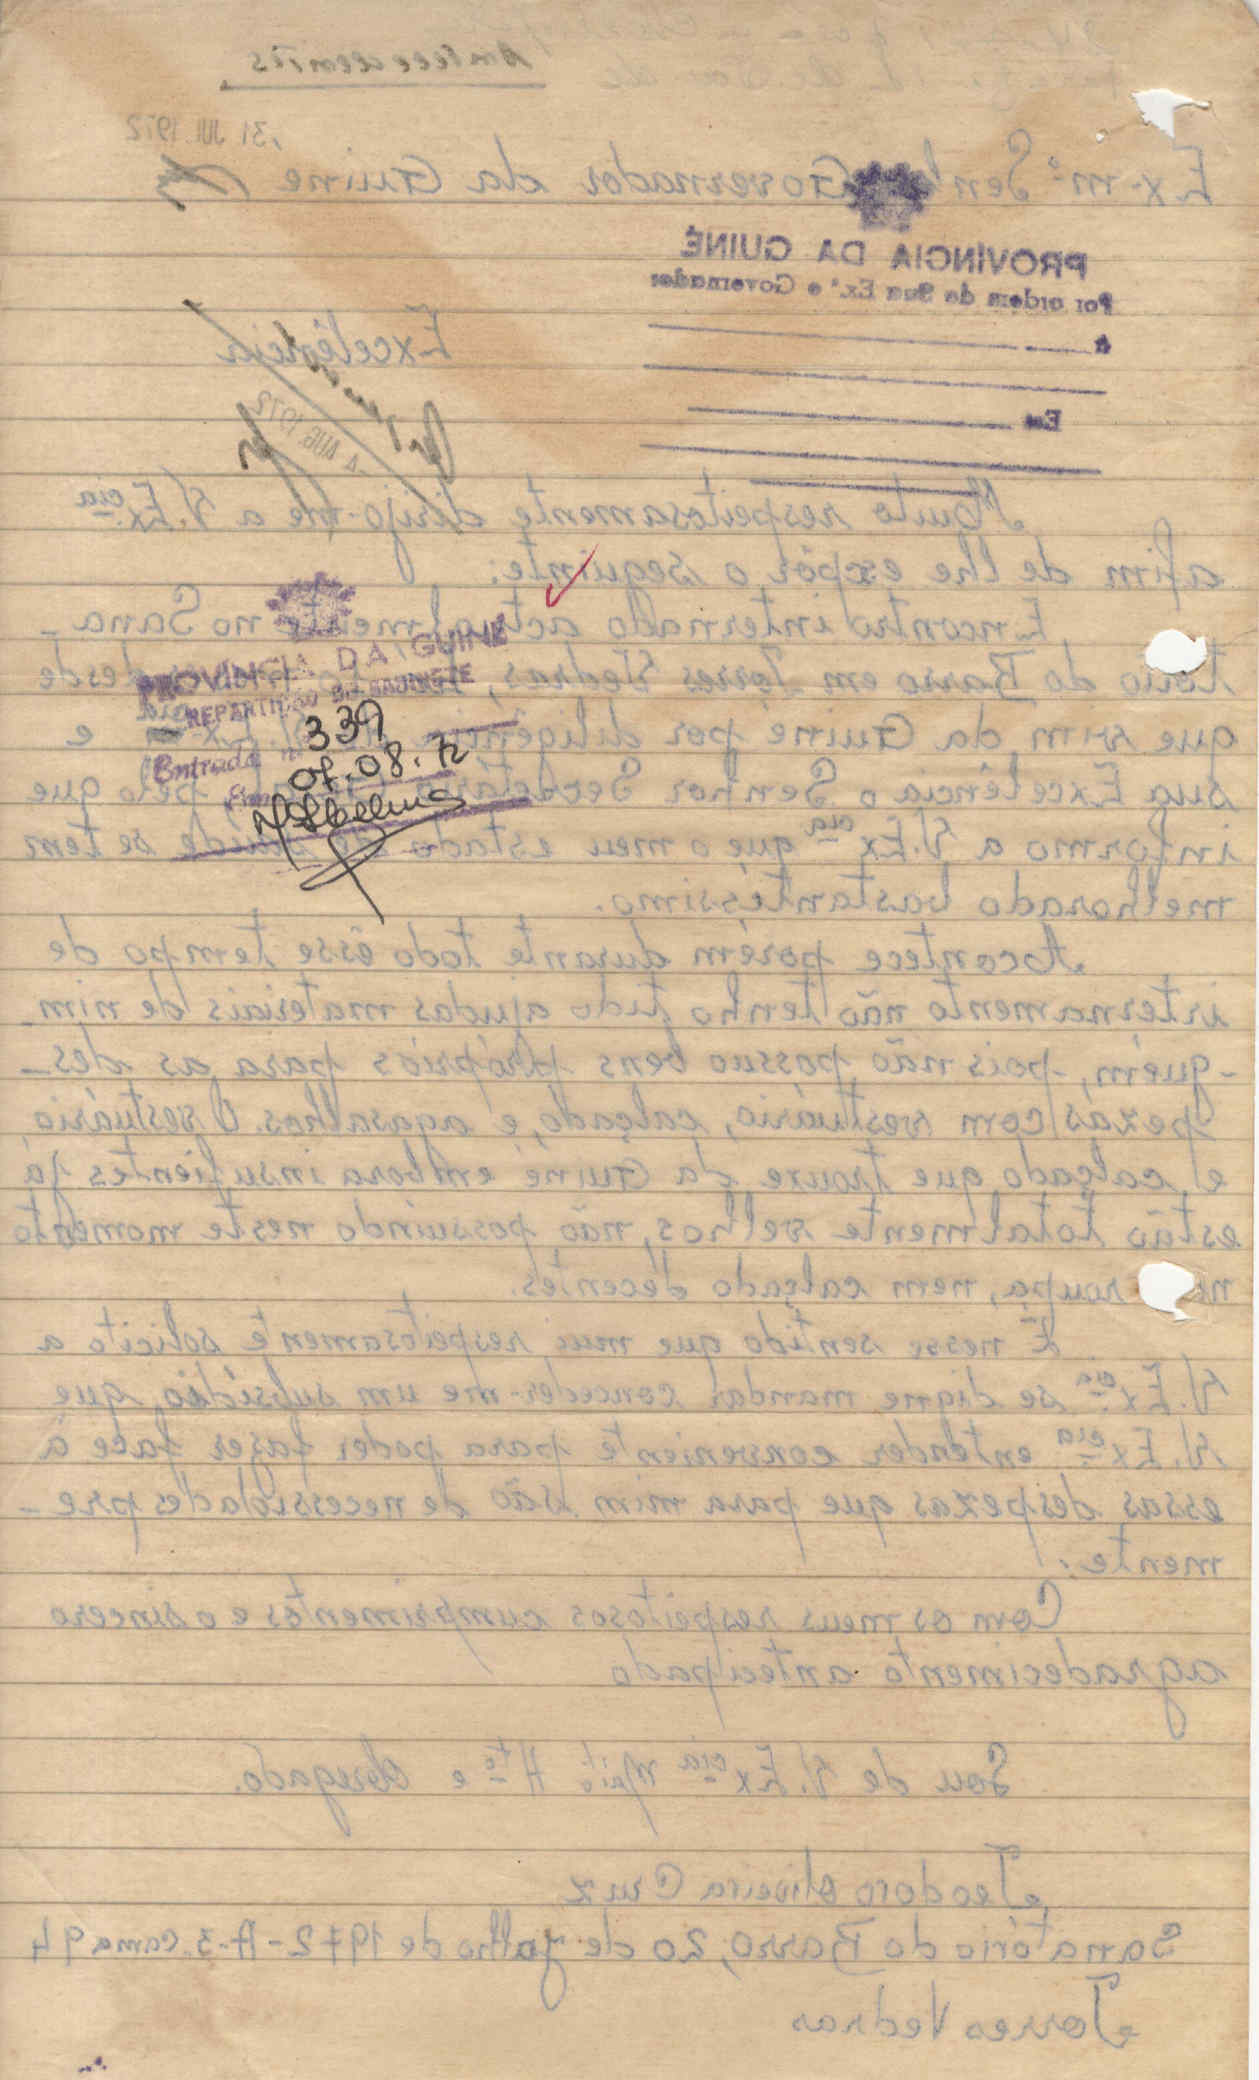 Antecedentes
31 JUL. 1972
Ex.mº Senh Governador da Guiné
PROVÍNCIA DA GUINÉ
Por ordem de Sua Ex.ª o Governador
À
Em
Excelência
-4 AUG 1972
Muito respeitosamente dirijo-me a V. Excia
afim de lhe expôr o seguinte:
Encontro internado actualmente no Sana-
tório do Barro em Torres Vedras, desde
que vim da Guiné por diligência V. Ex e
sua Excelência o Senhor Secretário pelo que
informo a V. Excia que o meu estado de saúde se tem
melhorado bastantíssimo.
PROVÍNCIA DA GUINÉ
REPARTIÇÃO DO GABINETE
Entrada nº 339
07.08.72
Acontece porém durante todo êsse tempo de
internamento não tenho tido ajudas materiais de nim-
-guém, pois não possuo bens próprios para as des-
pezas com vestuário, calçado, e agasalhos. O vestuário
e calçado que trouxe da Guiné embora insufientes já
estão totalmente velhos, não possuindo neste momento
n roupa, nem calçado decentes.
É nesse sentido que mui respeitosamente solicito a
V. Excia se digne mandar conceder-me um subsídio, que
V. Excia entender conveniente para poder fazer face à
essas despezas que para mim são de necessidades pre-
mente.
Com os meus respeitosos cumprimentos e o sincero
agradecimento antecipado
Sou de V. Excia Muitº Atte e Obrigado.
Teodoro Oliveira Cruz
Sanatório do Barro, 20 de Julho de 1972 - A-3. Cama 94
Torres Vedras